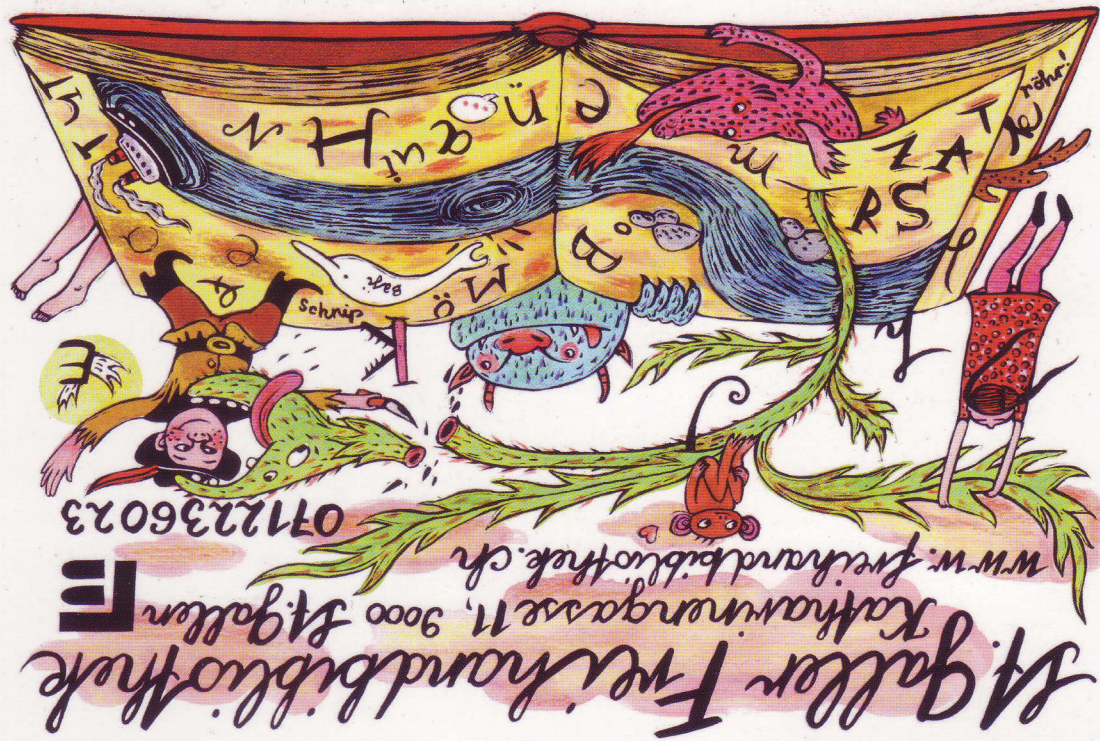 St. Galler Freihandbibliothek
Katharinengasse 11, 9000 St.Gallen
www.freihandbibliothek.ch
0712236023
Schnip
röhr!